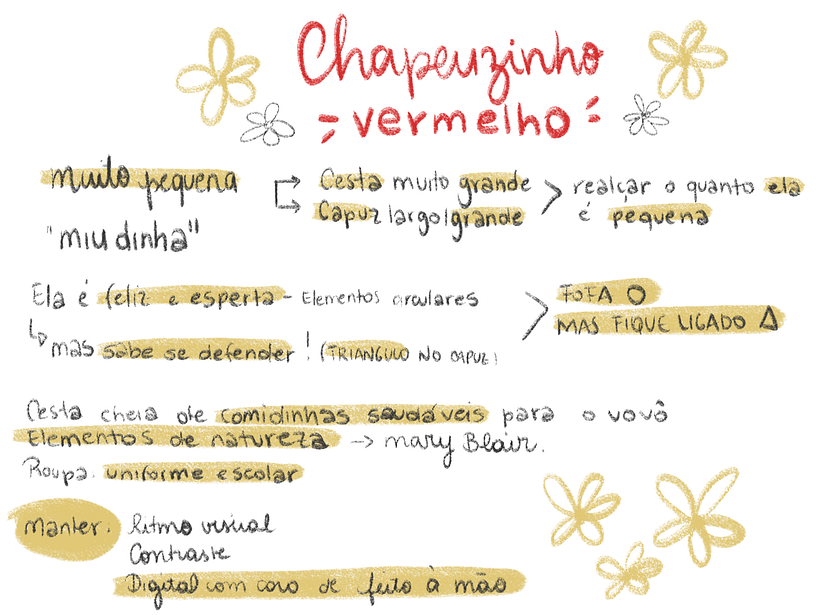 Chapeuzinho
vermelho
muito pequena
"miudinha"
Cesta muito grande
Capuz largo/grande
realçar o quanto ela
é pequena
Ela é feliz e esperta - Elementos circulares
mas sabe se defender! (TRIANGULO NO CAPUZ)
FOFA O
MAS FIQUE LIGADO Δ
Cesta cheia de comidinhas saudáveis para o vovô
Elementos de natureza -> mary Blair.
Roupa. uniforme escolar
manter. Ritmo visual
Contraste
Digital com cara de feito à mão